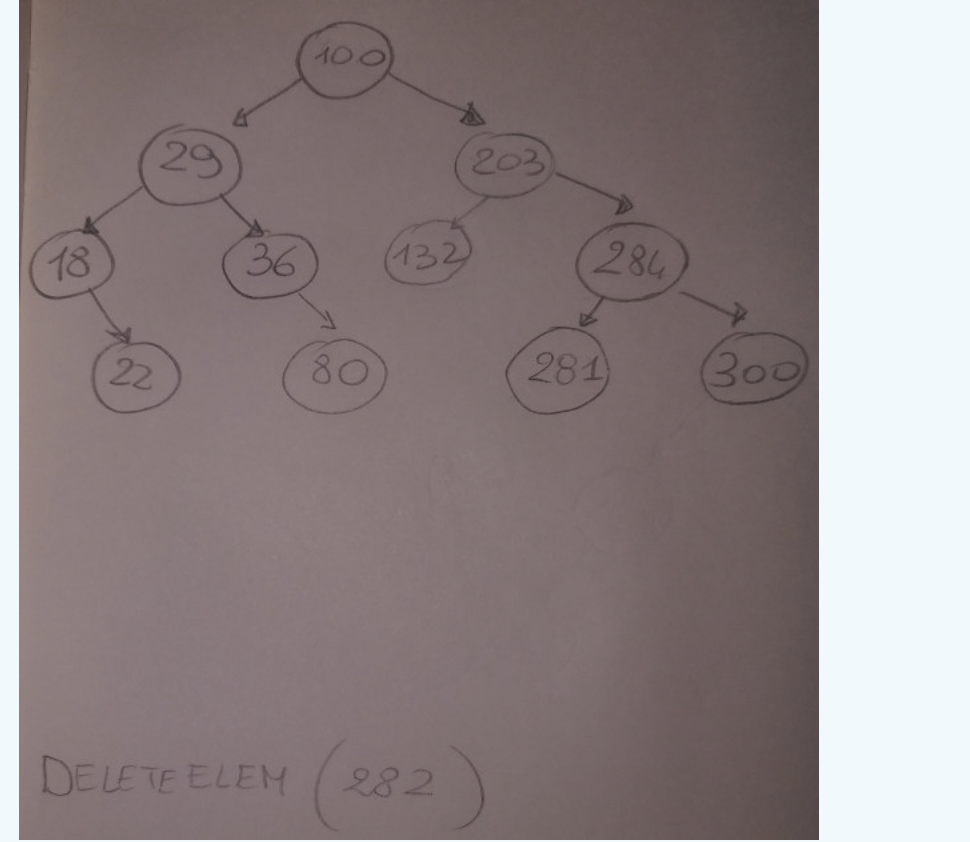 100
29 203
18 36 132 284
22 80 281 300
DELETEELEM (282)